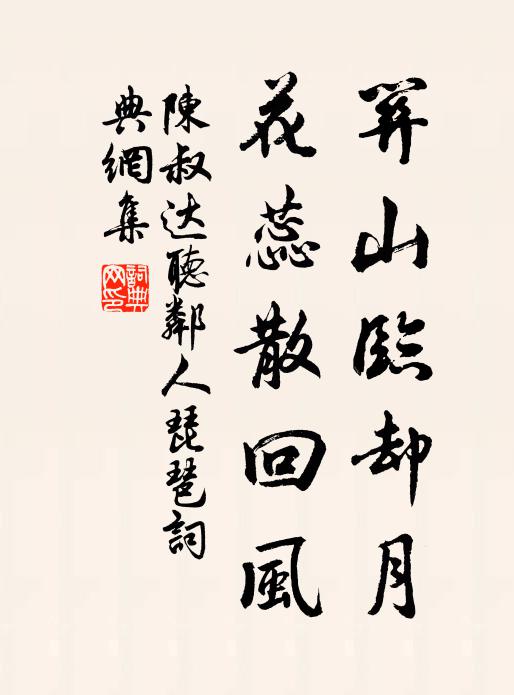 關山臨却月
花蕊散回風
陳叔达聽鄰人琵琶詞
典網集
詞典
网印